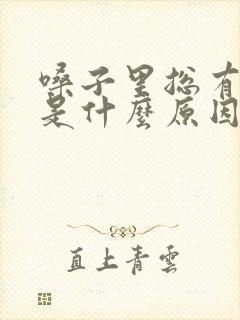 嗓子里总有
是什麽原因
直上青雲